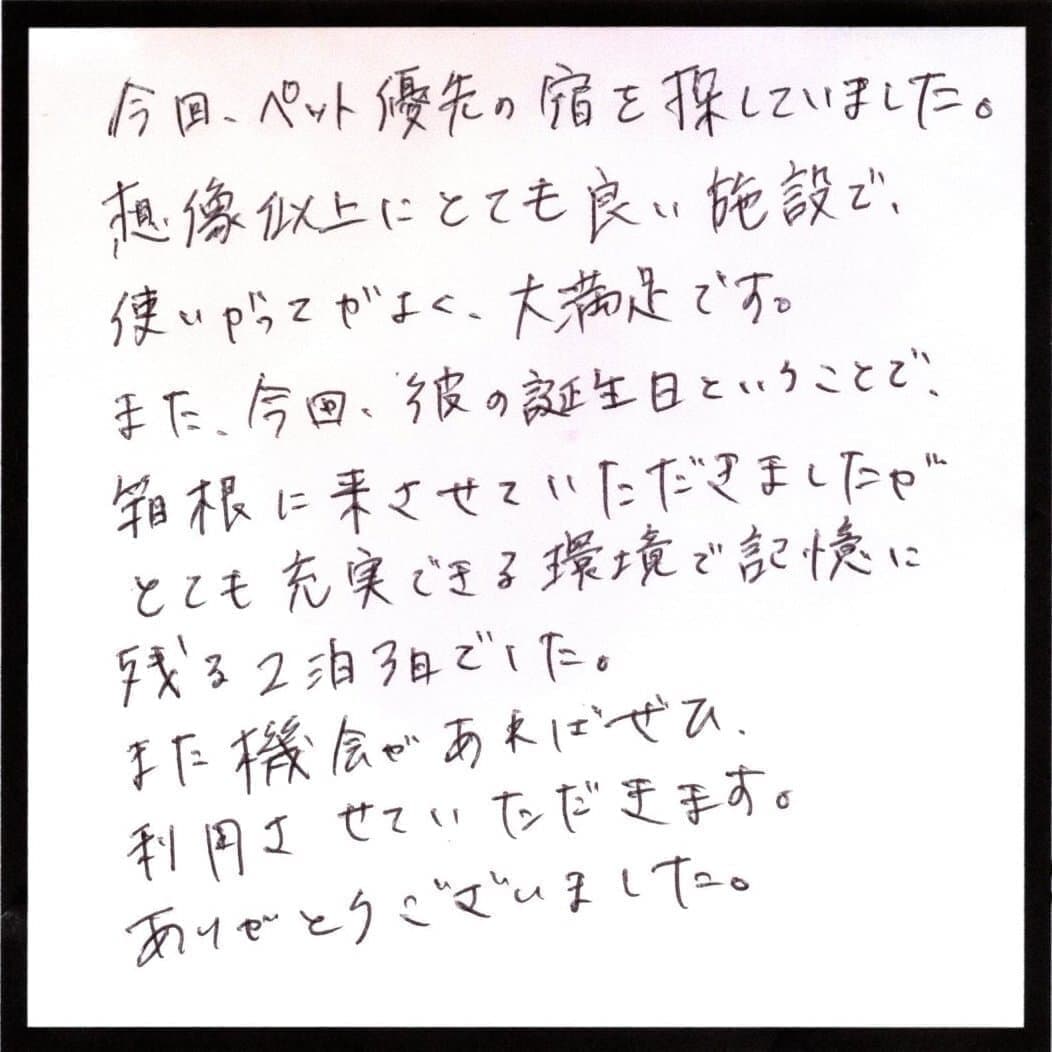 今回、ペット優先の宿を探していました。
想像以上にとても良い施設で、
使いがってがよく、大満足です。
また、今回、彼の誕生日ということで、
箱根に来させていただきましたが
とても充実できる環境で記憶に
残る2泊3日でした。
また機会があればぜひ、
利用させていただきます。
ありがとうございました。